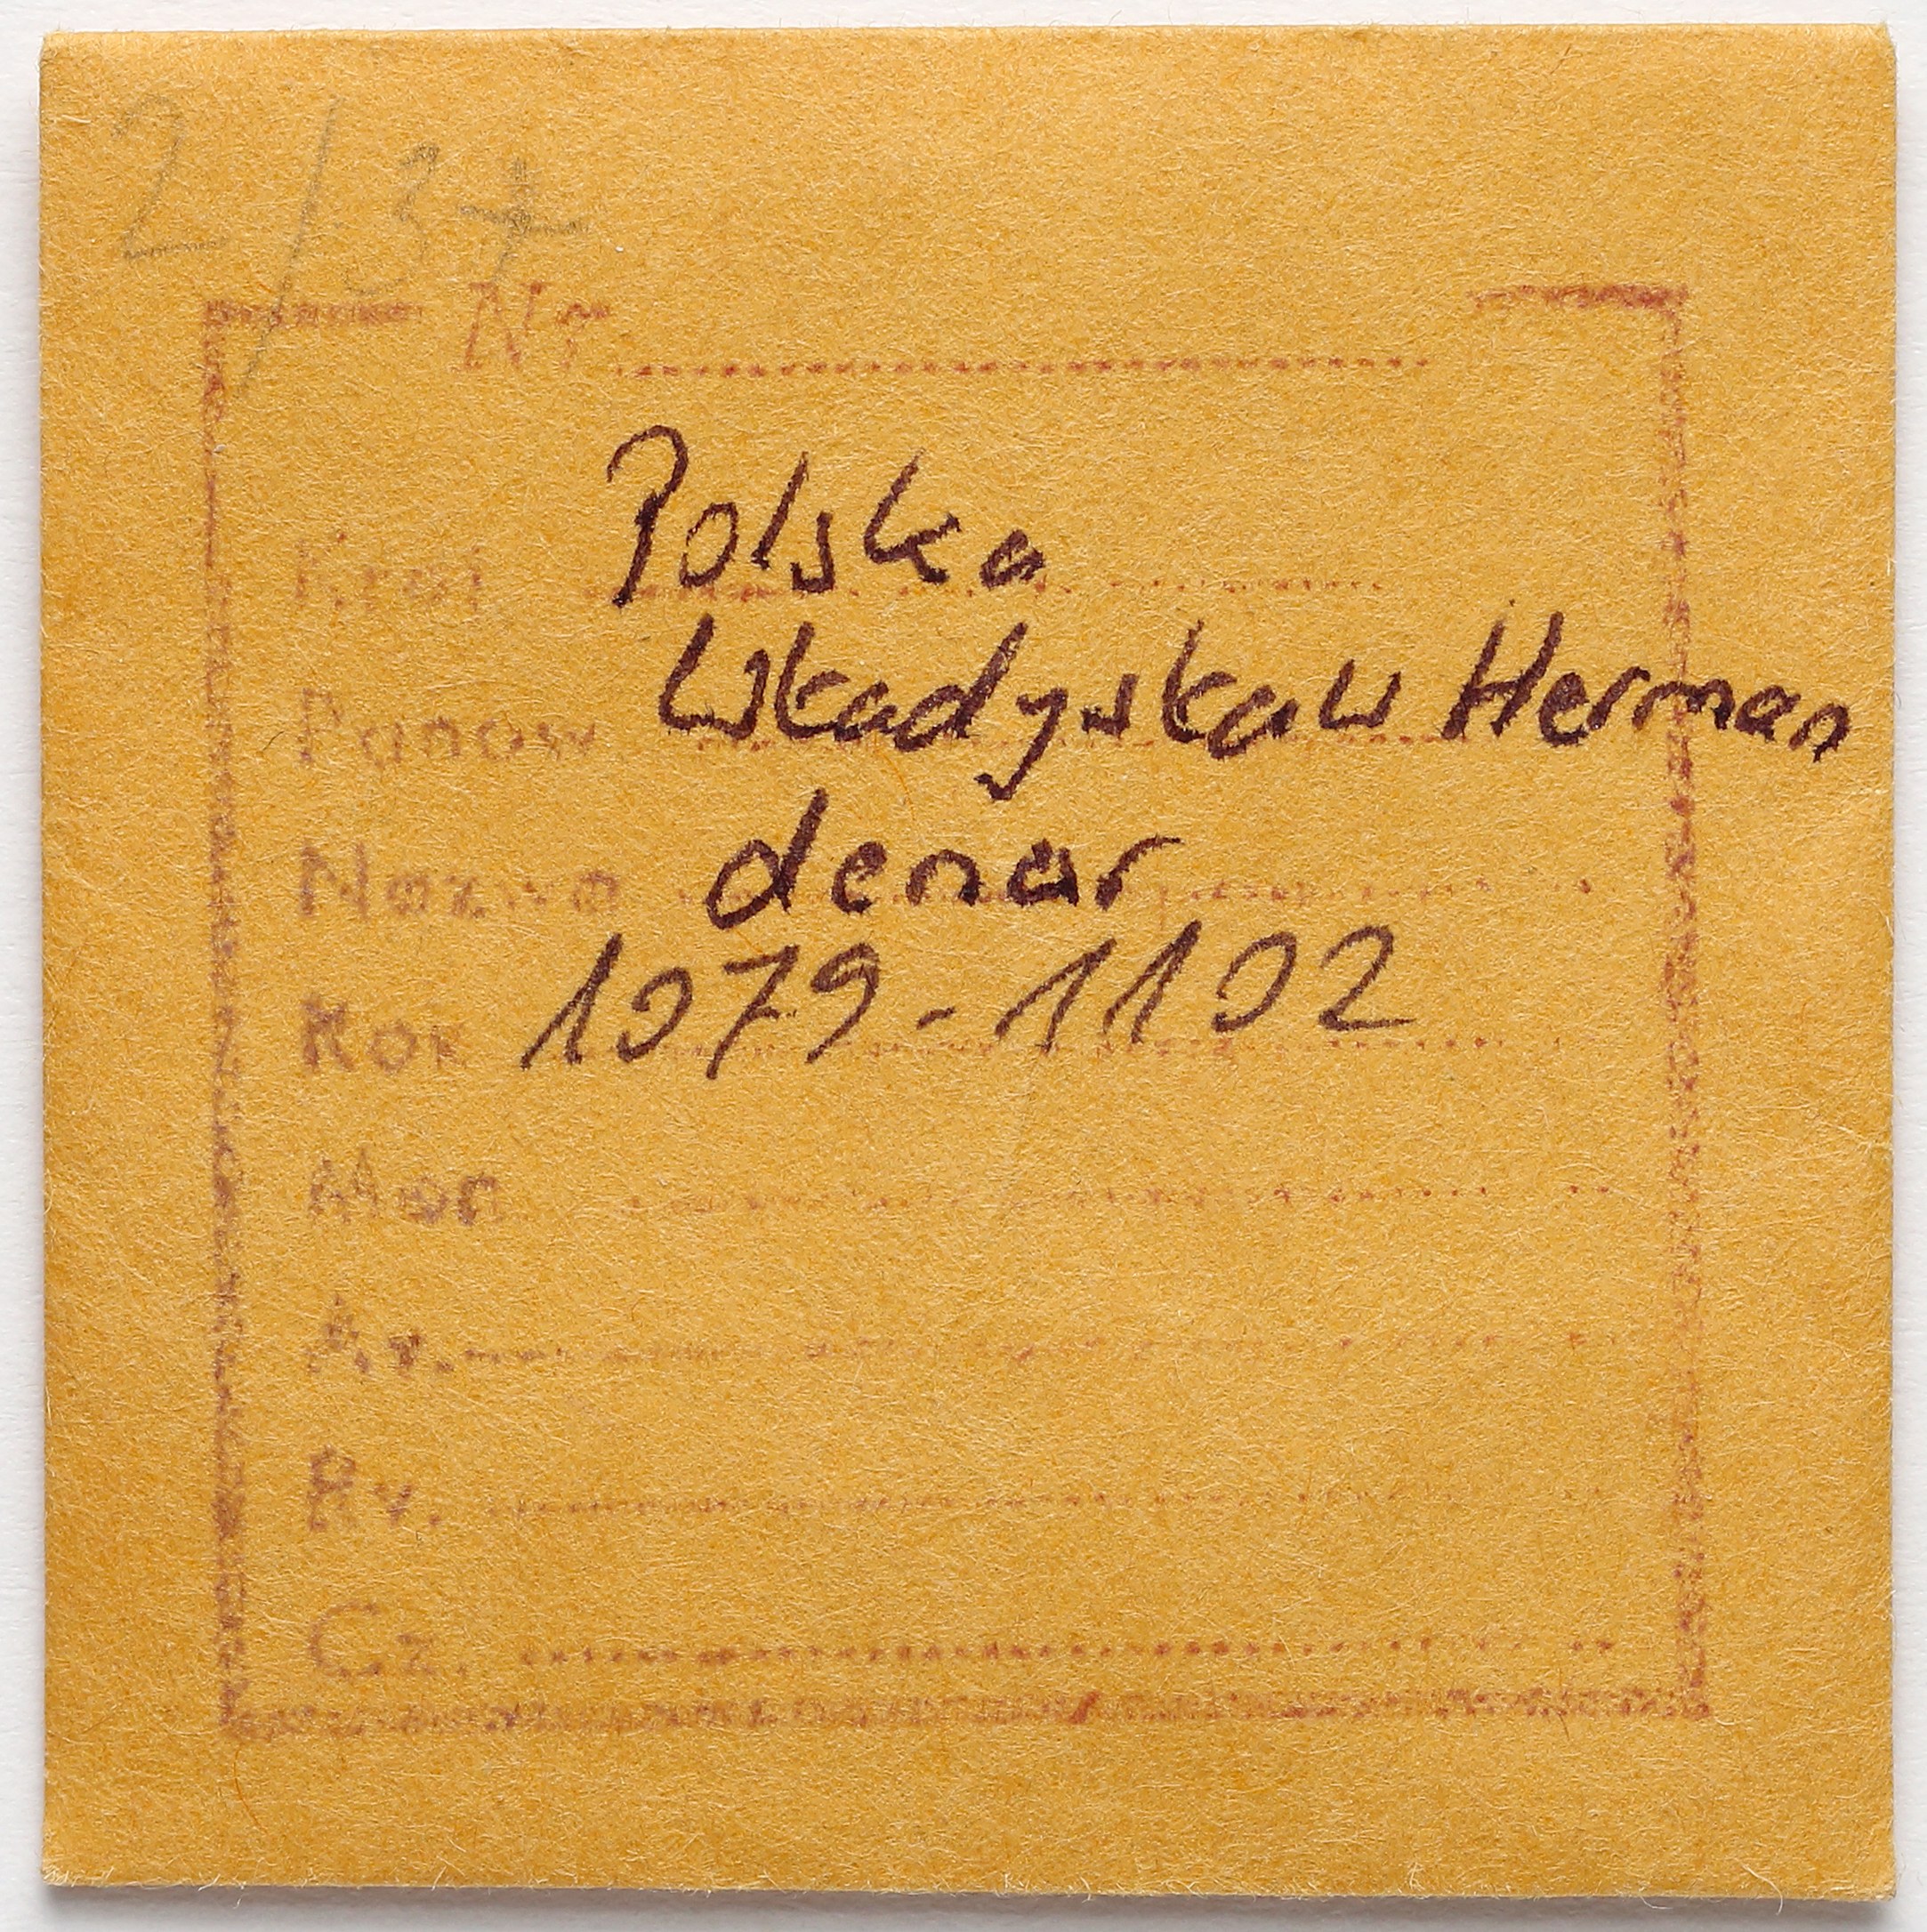 2/37
Nr
Kraj Polska
Panow Władysław Herman
Nazwa denar
Rok 1079-1102
Mon
Av.
Rv.
Cz.